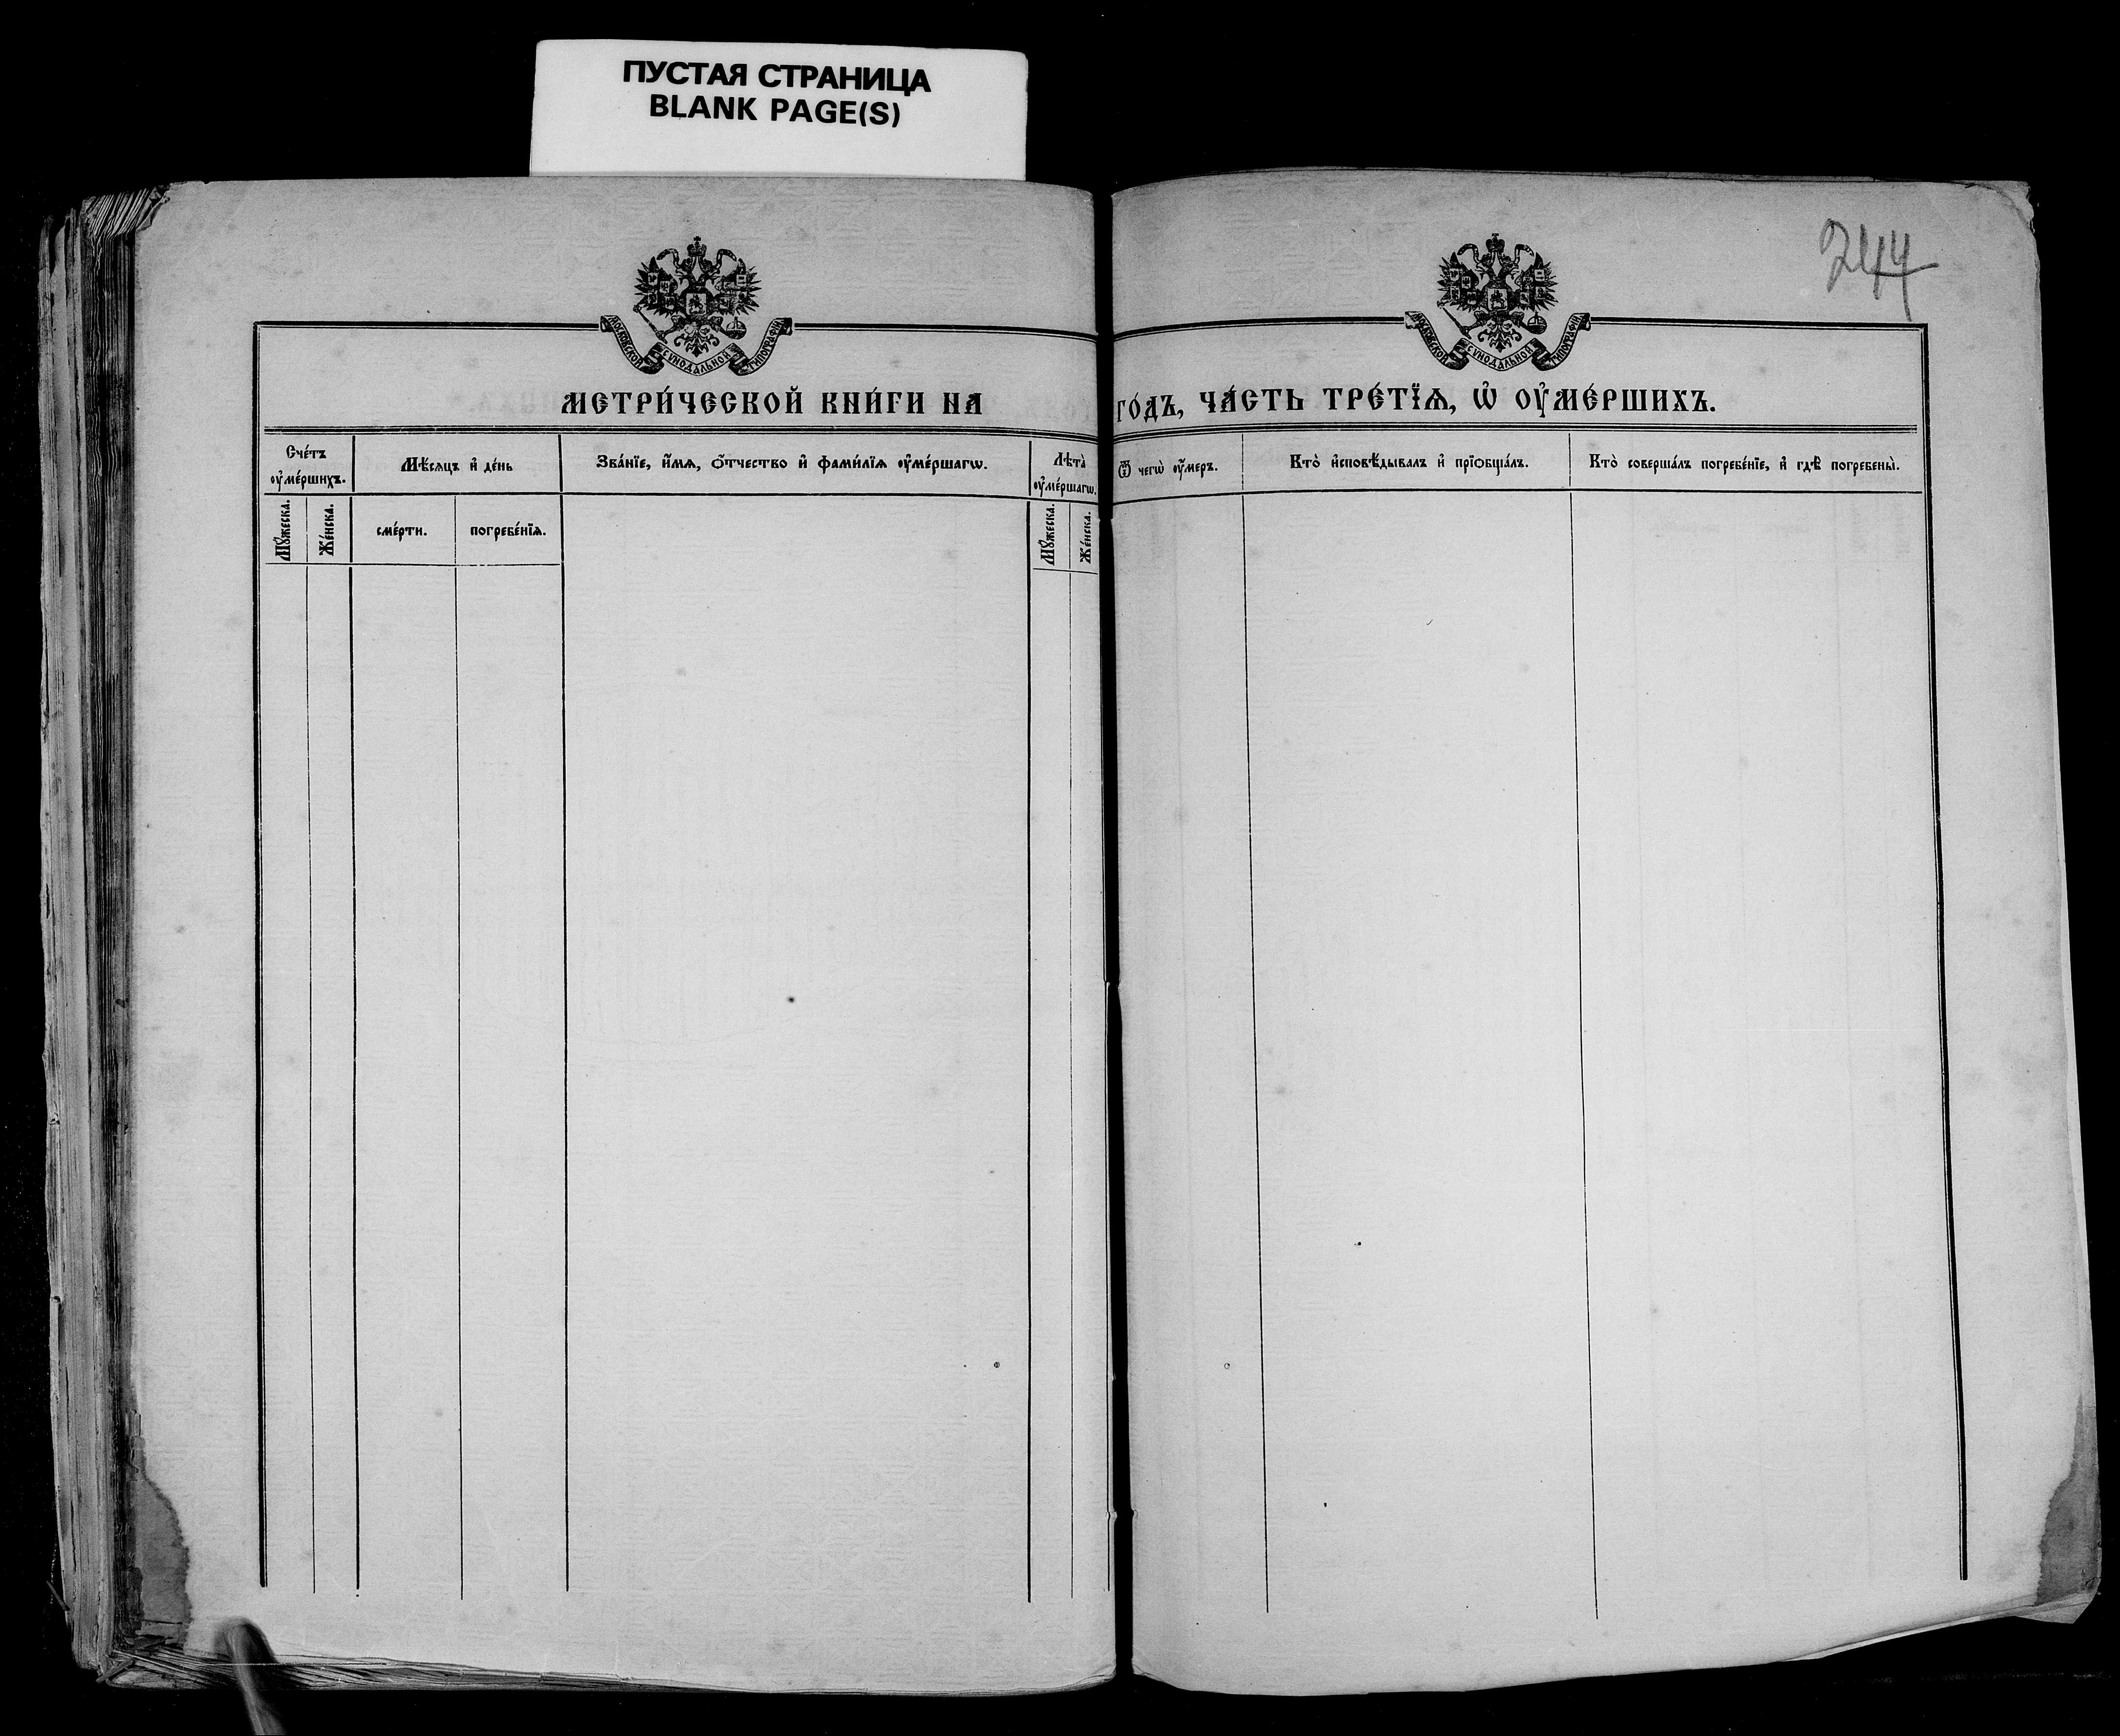 ПУСТАЯ СТРАНИЦА
BLANK PAGE(S)
244
МОСКОВСКОЙ СѴНОДАЛЬНОЙ ТИПОГРАФІИ
МОСКОВСКОЙ СѴНОДАЛЬНОЙ ТИПОГРАФІИ
МЕТРИ́ЧЕСКОЙ КНИ́ГИ НА ГО́ДЪ, ЧА́СТЬ ТРЕ́ТЇѦ, Ѡ҆ ОУ҆МЕ́РШИХЪ.
Сче́тъ оу҆ме́ршихъ.
Мѣ́сѧцъ и҆ де́нь
Зва́нїе, и҆́мѧ, ѻ҆́тчество и҆ фами́лїѧ оу҆ме́ршагѡ.
Лѣ́та̀ оу҆ме́ршагѡ.
Ѿ чегѡ̀ оу҆́меръ.
Кто̀ и҆сповѣ́дывалъ и҆ прїѡбща́лъ.
Кто̀ соверша́лъ погребе́нїе, и҆ гдѣ̀ погребены̀.
Мꙋ́жеска.
Же́нска.
сме́рти.
погребе́нїѧ.
Мꙋ́жеска.
Же́нска.